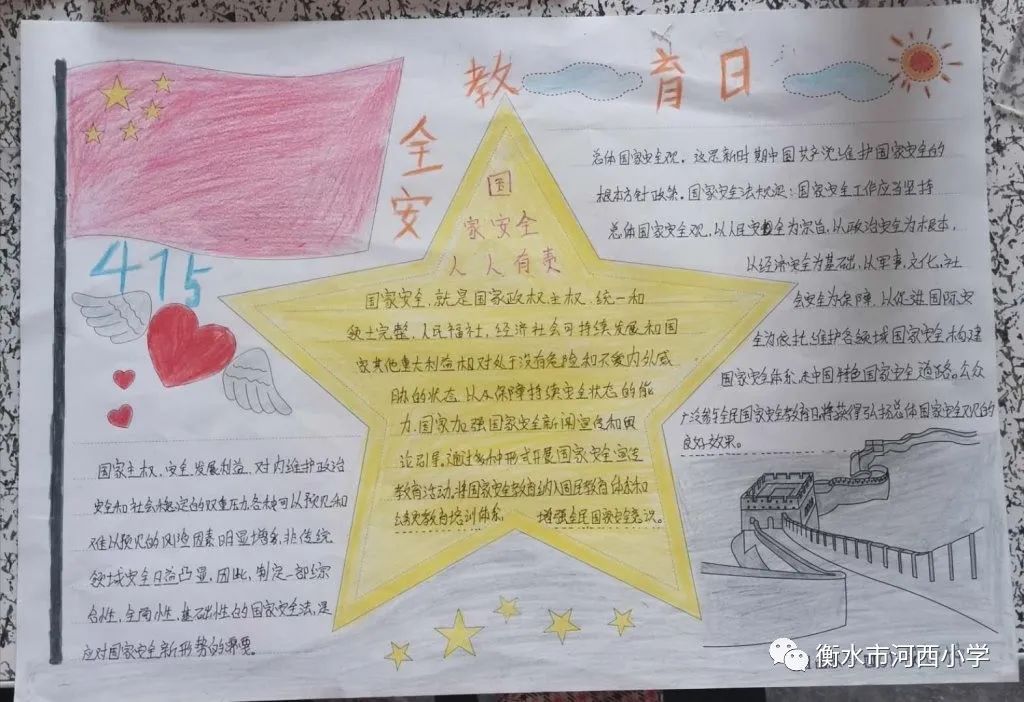 全安
教育日
415
国
家安全
人人有责
国家安全,就是国家政权、主权、统一和
领土完整,人民福祉,经济社会可持续发展和国
家其他重大利益相对处于没有危险和不受内外威
胁的状态,以及保障持续安全状态的能
力,国家加强国家安全新闻宣传和舆
论引导,通过多种形式开展国家安全宣传
教育活动,将国家安全教育纳入国民教育体系和
教育培训体系 增强全民国家安全意识。
总体国家安全观,这是新时期中国共产党维护国家安全的
根本方针政策,国家安全法规定:国家安全工作应当坚持
总体国家安全观,以人民安全为宗旨,以政治安全为根本,
以经济安全为基础,以军事,文化,社
会安全为保障,以促进国际安
全为依托,维护各领域国家安全构建
国家安全体系,走中国特色国家安全道路。公众
广泛参与全民国家安全教育日,将获得弘扬总体国家安全观的
良好效果。
国家主权、安全,发展利益,对内维护政治
安全和社会稳定的双重压力,各种可以预见和
难以预见的风险因素明显增多,非传统
领域安全日益凸显,因此,制定一部综
合性,全局性,基础性的国家安全法,是
应对国家安全新形势的需要。
衡水市河西小学